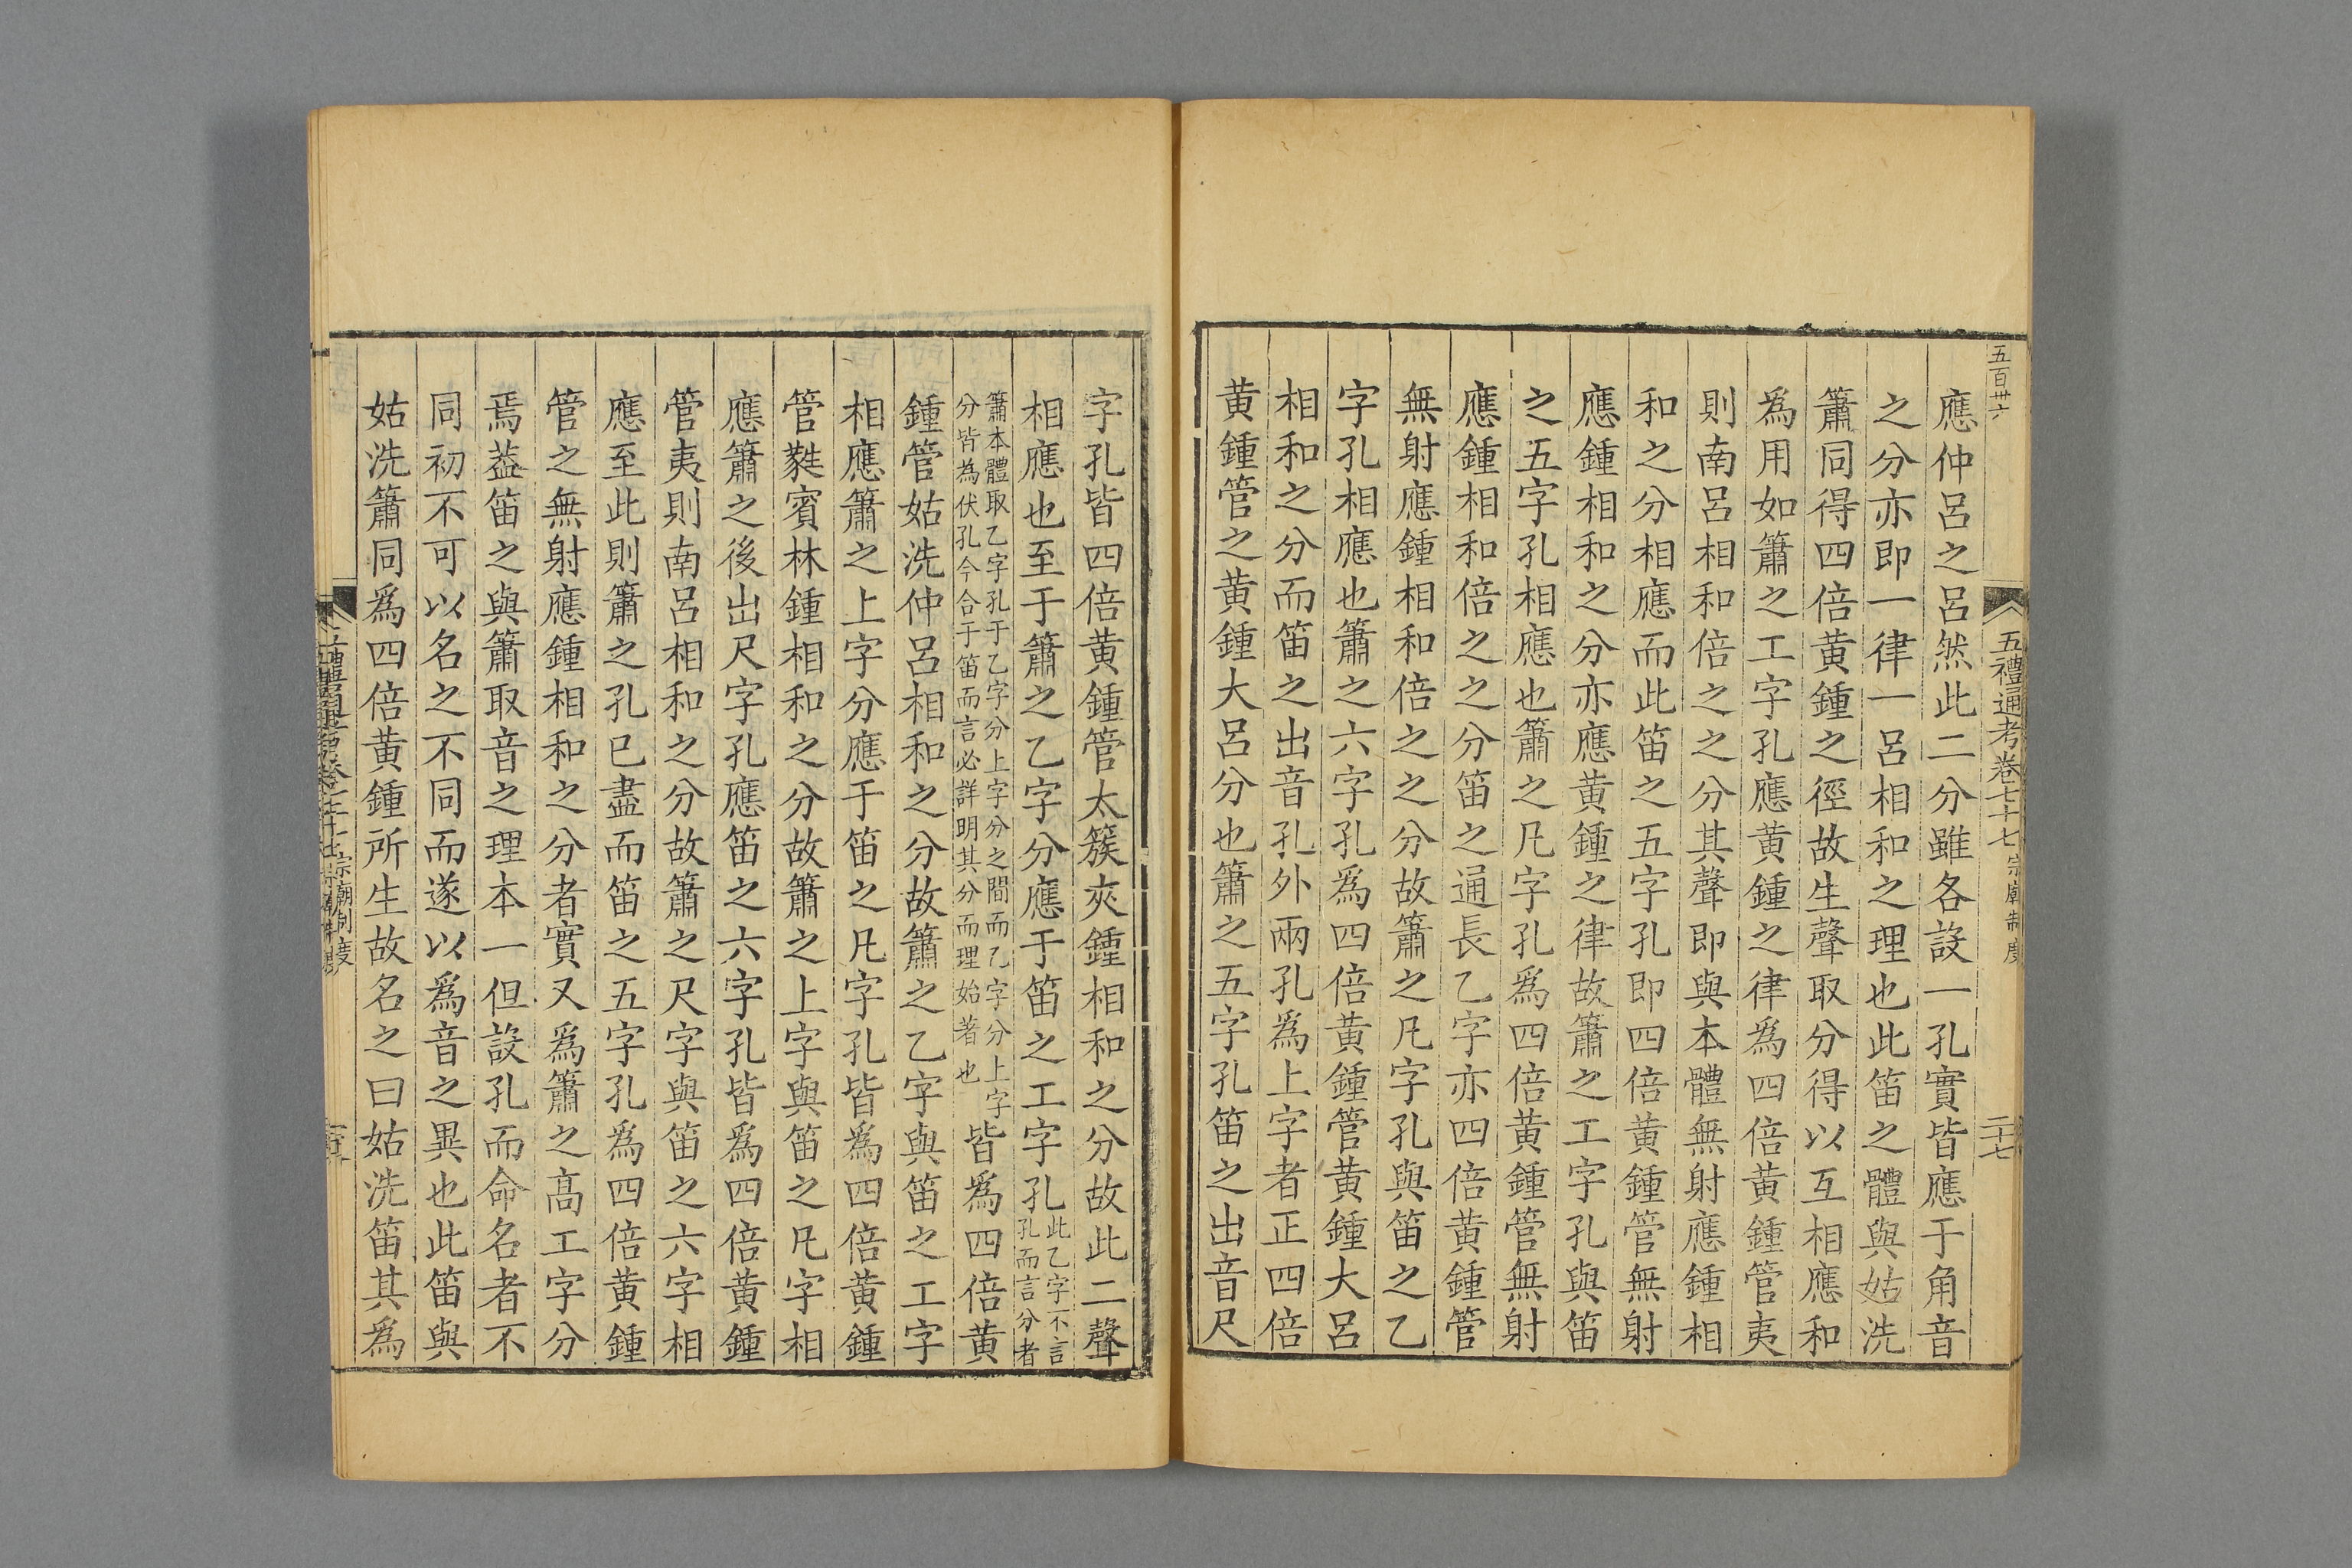 五百卅六
五禮通考卷七十七 宗廟制度
二十七
應仲呂之呂然此二分雖各設一孔實皆應于角音
之分亦即一律一呂相和之理也此笛之體與姑洗
簫同得四倍黃鍾之徑故生聲取分得以互相應和
為用如簫之工字孔應黃鍾之律為四倍黃鍾管夷
則南呂相和倍之之分其聲即與本體無射應鍾相
和之分相應而此笛之五字孔即四倍黃鍾管無射
應鍾相和之分亦應黃鍾之律故簫之工字孔與笛
之五字孔相應也簫之凡字孔為四倍黃鍾管無射
應鍾相和倍之之分笛之通長乙字亦四倍黃鍾管
無射應鍾相和倍之之分故簫之凡字孔與笛之乙
字孔相應也簫之六字孔為四倍黃鍾管黃鍾大呂
相和之分而笛之出音孔外兩孔為上字者正四倍
黃鍾管之黃鍾大呂分也簫之五字孔笛之出音尺
字孔皆四倍黃鍾管太簇夾鍾相和之分故此二聲
相應也至于簫之乙字分應于笛之工字孔此乙字不言孔而言分者
簫本體取乙字孔于乙字分上字分之間而乙字分上字
分皆為伏孔今合于笛而言必詳明其分而理始著也
皆為四倍黃
鍾管姑洗仲呂相和之分故簫之乙字與笛之工字
相應簫之上字分應于笛之凡字孔皆為四倍黃鍾
管蕤賓林鍾相和之分故簫之上字與笛之凡字相
應簫之後出尺字孔應笛之六字孔皆為四倍黃鍾
管夷則南呂相和之分故簫之尺字與笛之六字相
應至此則簫之孔已盡而笛之五字孔為四倍黃鍾
管之無射應鍾相和之分者實又為簫之高工字分
焉葢笛之與簫取音之理本一但設孔而命名者不
同初不可以名之不同而遂以為音之異也此笛與
姑洗簫同為四倍黃鍾所生故名之曰姑洗笛其為
宗廟制度